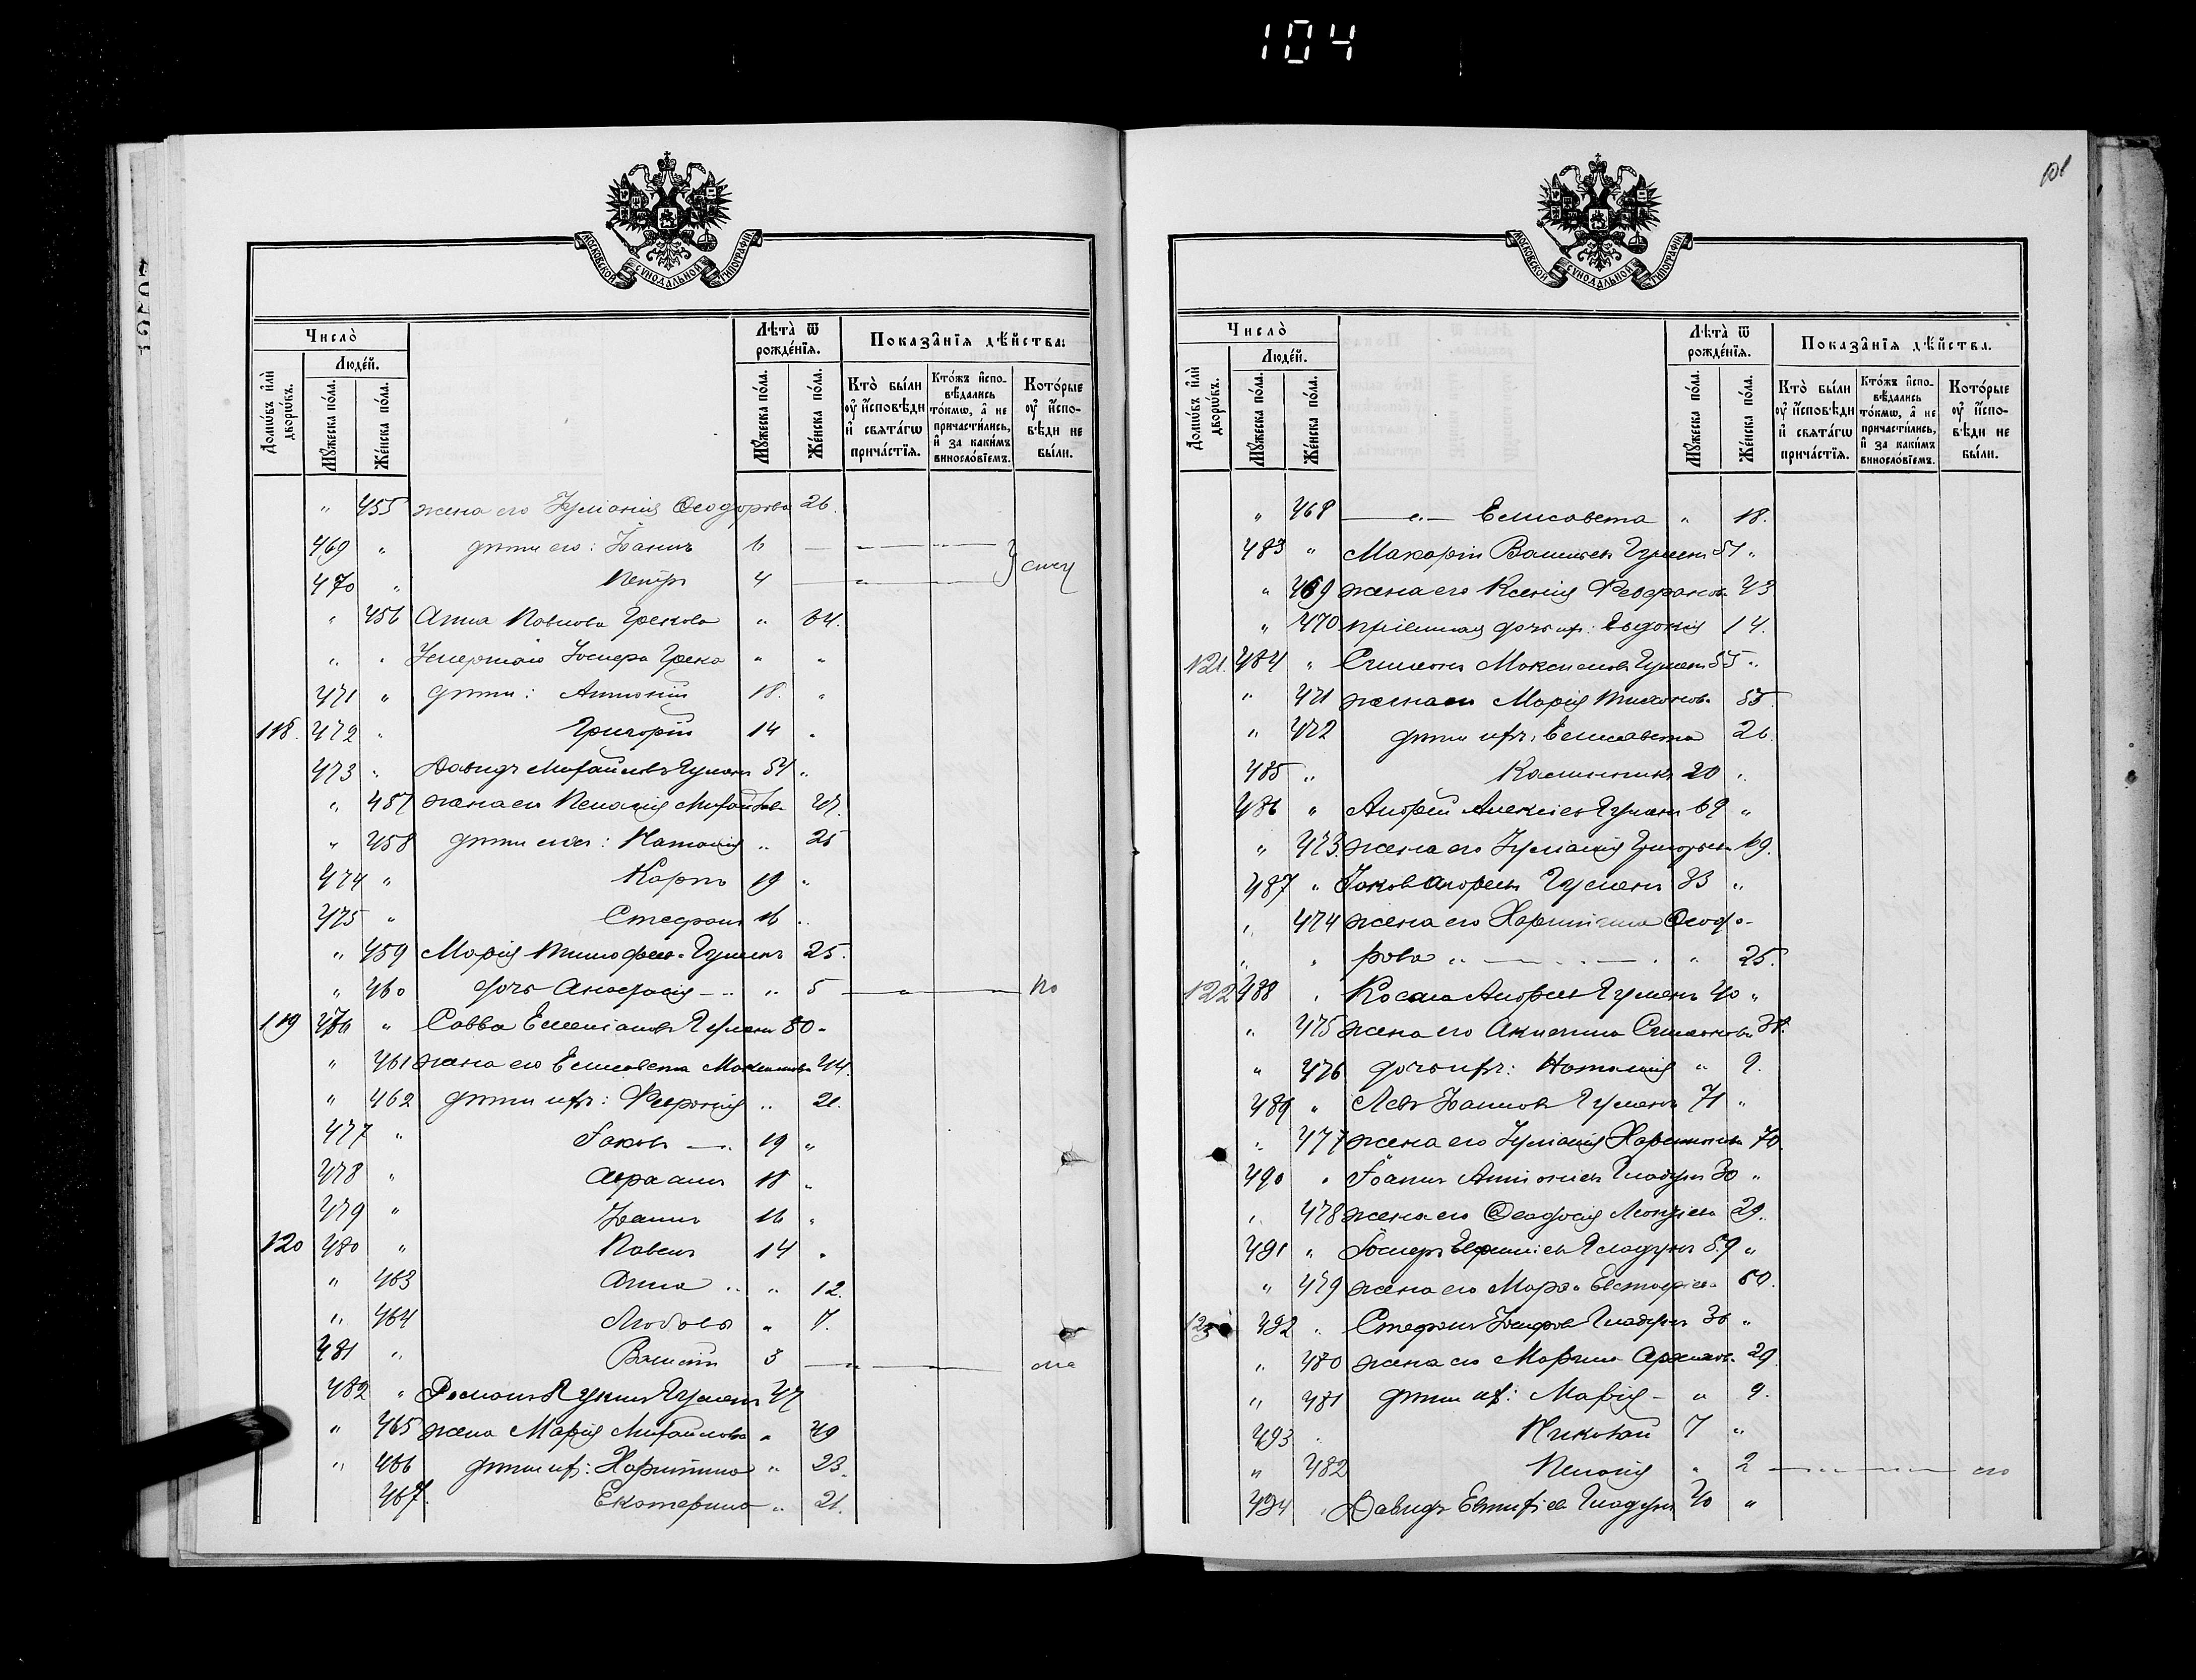 104
МОСКОВСКОЙ СѴНОДАЛЬНОЙ ТИПОГРАФІИ
Число̀
Людéй.
Домѡ́въ и҆лѝ дворѡ́въ.
Мꙋ́жеска по́ла.
Же́нска по́ла.
Лѣта̀ ѿ рожде́нїѧ.
Мꙋ́жеска по́ла.
Же́нска по́ла.
Показа̑нїѧ дѣ́йства:
Кто̀ бы́ли оу҆ и҆сповѣди и҆ свѧта́гѡ прича́стїѧ.
Кто́жъ и҆спо-вѣдались то́кмѡ, а҆ не причасти́лись, и҆ за каки́мъ винослове́мъ.
Кото́рые оу҆ и҆спо-вѣди не бы́ли.
" 455 жена его Іуліанія Ѳеодорова 26.
469 " дѣти его: Іоаннъ 6
470 " Петръ 4
" 456 Анна Павлова Грекова " 64.
" " Умершаго Іосифа Грека " "
471 " дѣти: Антоній 18. "
118. 472 " Григорій 14 "
473 " Давидъ Михайловъ Гуменъ 54 "
" 457 жена его Пелагія Михайлов. 47.
" 458 дѣти его: Наталія " 25
474 " Карпъ 19 "
475 " Стефанъ 16 "
" 459 Марія Тимофеева Гуменъ 25.
" 460 дочь Анастасія " 5 по
119 476 " Савва Емеліановъ Гуменъ 50 "
" 461 жена его Елисавета Максимова 44.
" 462 дѣти ихъ: Февронія " 21.
477 " Іаковъ 19 "
478 " Авраамъ 18 "
479 " Іоаннъ 16 "
120 480 " Павелъ 14 "
" 463 Анна " 12.
" 464 Любовь " 7.
481 " Василій 3
482 " Романъ Лукинъ Гуменъ 47
" 465 жена Марія Михайлова " 49
" 466 дѣти их: Харитина " 23.
467. Екатерина " 21.
МОСКОВСКОЙ СѴНОДАЛЬНОЙ ТИПОГРАФІИ
Число̀
Людéй.
Домѡ́въ и҆лѝ дворѡ́въ.
Мꙋ́жеска по́ла.
Же́нска по́ла.
Лѣта̀ ѿ рожде́нїѧ.
Мꙋ́жеска по́ла.
Же́нска по́ла.
Показа̑нїѧ дѣ́йства.
Кто̀ бы́ли оу҆ и҆сповѣди и҆ свѧта́гѡ прича́стїѧ.
Кто́жъ и҆спо-вѣдались то́кмѡ, а҆ не причасти́лись, и҆ за каки́мъ винослове́мъ.
Кото́рые оу҆ и҆спо-вѣди не бы́ли.
" 468 Елисавета " 18.
483 " Макарій Васильев Гуменъ 51 "
" 469 жена его Ксенія Феофанов. 43
" 470 пріемная дочь их: Евдокія 14.
121. 484 " Симеонъ Максимовъ Гуменъ 55 "
" 471 жена его Марія Тихонов. 55
" 472 дѣти ихъ: Елисавета 26.
485 " Калинникъ 20 "
486 " Андрей Алексіев Гуменъ 69 "
" 473. жена его Іуліанія Григорьев. 69.
487 " Іаков Андреев Гуменъ 33 "
" 474 жена его Харитина Ѳеодо-
" " рова " 25.
122 488 " Косма Андреев Гуменъ 40 "
" 475 жена его Акилина Симеонова 38.
" 476 дочь ихъ: Наталія " 9.
489 " Левъ Іоанновъ Гуменъ 71 "
" 477 жена его Іуліанія Харитонова 70.
490 " Іоаннъ Антоніевъ Гладунъ 30 "
" 478 жена его Ѳеодосія Леонтіева 29.
491 " Іосифъ Евфиміевъ Гладунъ 59 "
" 479 жена его Марѳа Евстафіева 50.
123 492 " Стефанъ Іосифов Гладунъ 30 "
" 480 жена его Марина 29.
" 481 дѣти их: Марія " 9.
493 Николай 7 "
" 482 Пелагія " 2
494 " Давидъ Евтихіев Гладунъ 40 "